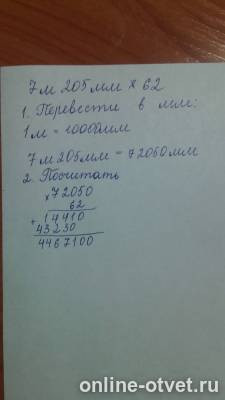 7м 205мм × 62
1. Перевести в мм:
1м = 10000мм
7м 205мм = 72050мм
2. Посчитать
×72050
62
14410
+
43230
4467100
online-otvet.ru